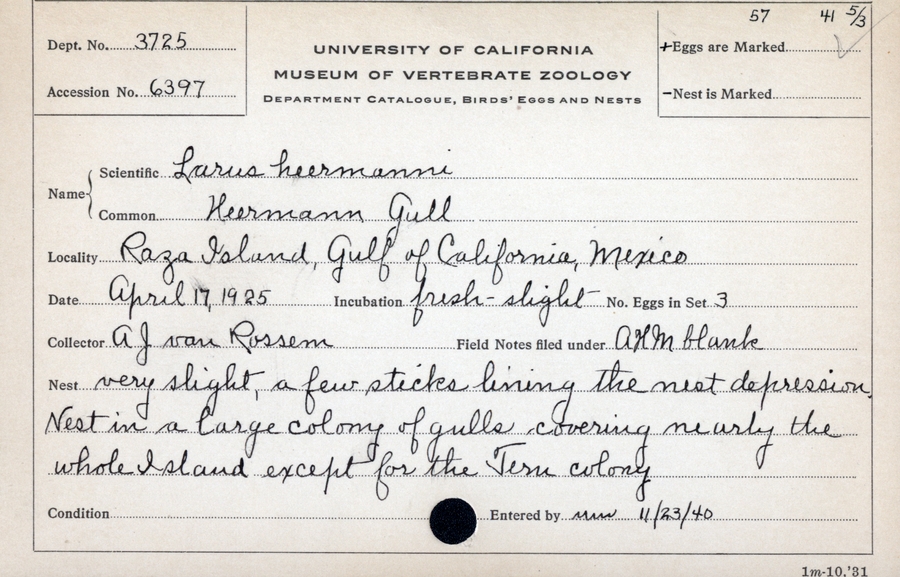 57 41 5/3
Dept. No. 3725
UNIVERSITY OF CALIFORNIA
+Eggs are Marked
MUSEUM OF VERTEBRATE ZOOLOGY
Accession No. 6397
DEPARTMENT CATALOGUE, BIRDS' EGGS AND NESTS
-Nest is Marked
Name
Scientific Larus heermanni
Common Heermann Gull
Locality Raza Island, Gulf of California, Mexico
Date April 17, 1925 Incubation fresh-slight No. Eggs in Set 3
Collector A J van Rossem Field Notes filed under AHM blank
Nest very slight, a few sticks lining the nest depression.
Nest in a large colony of gulls covering nearly the
whole Island except for the Tern colony
Condition Entered by mm 11/23/40
1m-10,'31